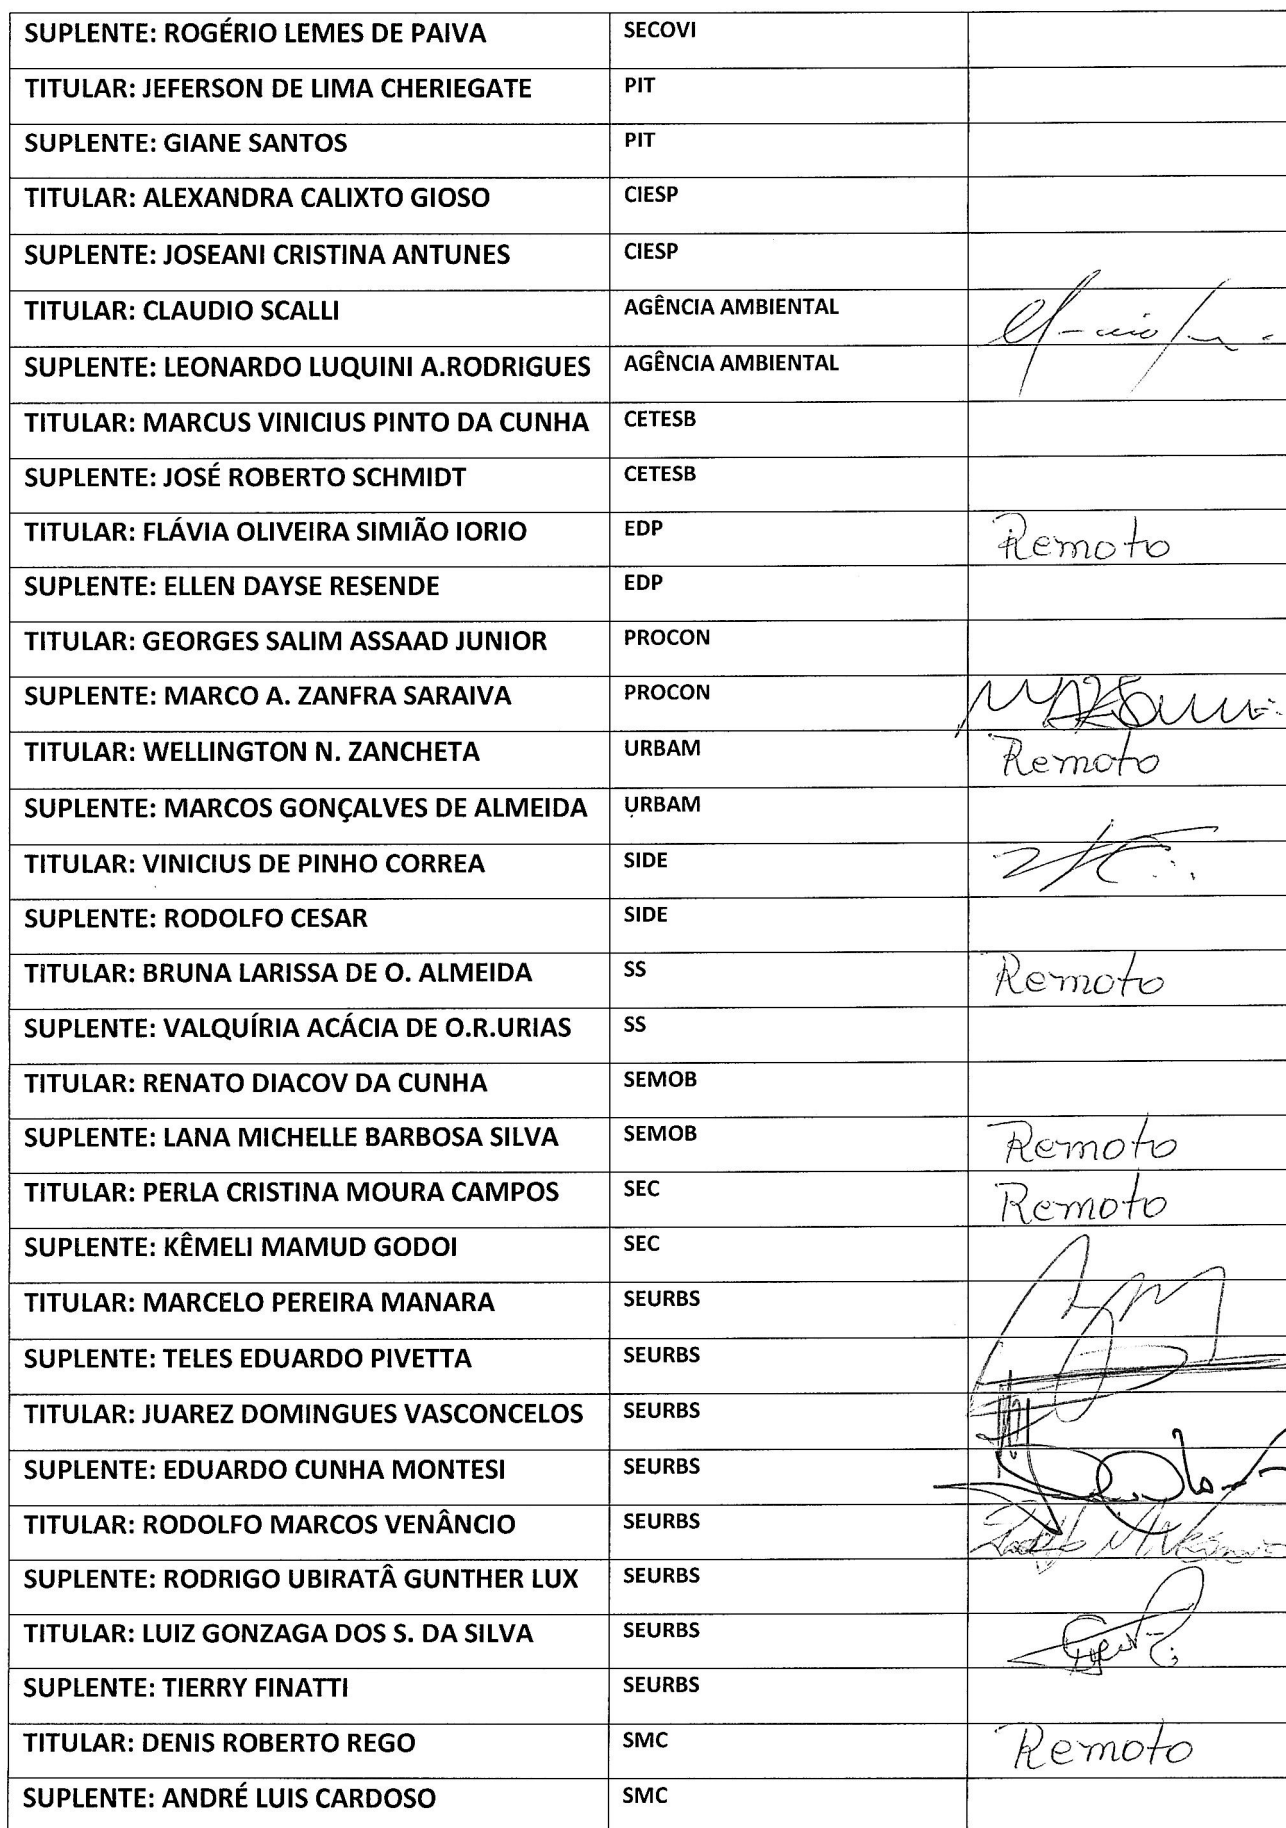 SUPLENTE: ROGÉRIO LEMES DE PAIVA SECOVI
TITULAR: JEFERSON DE LIMA CHERIEGATE PIT
SUPLENTE: GIANE SANTOS PIT
TITULAR: ALEXANDRA CALIXTO GIOSO CIESP
SUPLENTE: JOSEANI CRISTINA ANTUNES CIESP
TITULAR: CLAUDIO SCALLI AGÊNCIA AMBIENTAL
SUPLENTE: LEONARDO LUQUINI A.RODRIGUES AGÊNCIA AMBIENTAL
TITULAR: MARCUS VINICIUS PINTO DA CUNHA CETESB
SUPLENTE: JOSÉ ROBERTO SCHMIDT CETESB
TITULAR: FLÁVIA OLIVEIRA SIMIÃO IORIO EDP Remoto
SUPLENTE: ELLEN DAYSE RESENDE EDP
TITULAR: GEORGES SALIM ASSAAD JUNIOR PROCON
SUPLENTE: MARCO A. ZANFRA SARAIVA PROCON
TITULAR: WELLINGTON N. ZANCHETA URBAM Remoto
SUPLENTE: MARCOS GONÇALVES DE ALMEIDA URBAM
TITULAR: VINICIUS DE PINHO CORREA SIDE
SUPLENTE: RODOLFO CESAR SIDE
TITULAR: BRUNA LARISSA DE O. ALMEIDA SS Remoto
SUPLENTE: VALQUÍRIA ACÁCIA DE O.R.URIAS SS
TITULAR: RENATO DIACOV DA CUNHA SEMOB
SUPLENTE: LANA MICHELLE BARBOSA SILVA SEMOB Remoto
TITULAR: PERLA CRISTINA MOURA CAMPOS SEC Remoto
SUPLENTE: KÊMELI MAMUD GODOI SEC
TITULAR: MARCELO PEREIRA MANARA SEURBS
SUPLENTE: TELES EDUARDO PIVETTA SEURBS
TITULAR: JUAREZ DOMINGUES VASCONCELOS SEURBS
SUPLENTE: EDUARDO CUNHA MONTESI SEURBS
TITULAR: RODOLFO MARCOS VENÂNCIO SEURBS
SUPLENTE: RODRIGO UBIRATÂ GUNTHER LUX SEURBS
TITULAR: LUIZ GONZAGA DOS S. DA SILVA SEURBS
SUPLENTE: TIERRY FINATTI SEURBS
TITULAR: DENIS ROBERTO REGO SMC Remoto
SUPLENTE: ANDRÉ LUIS CARDOSO SMC